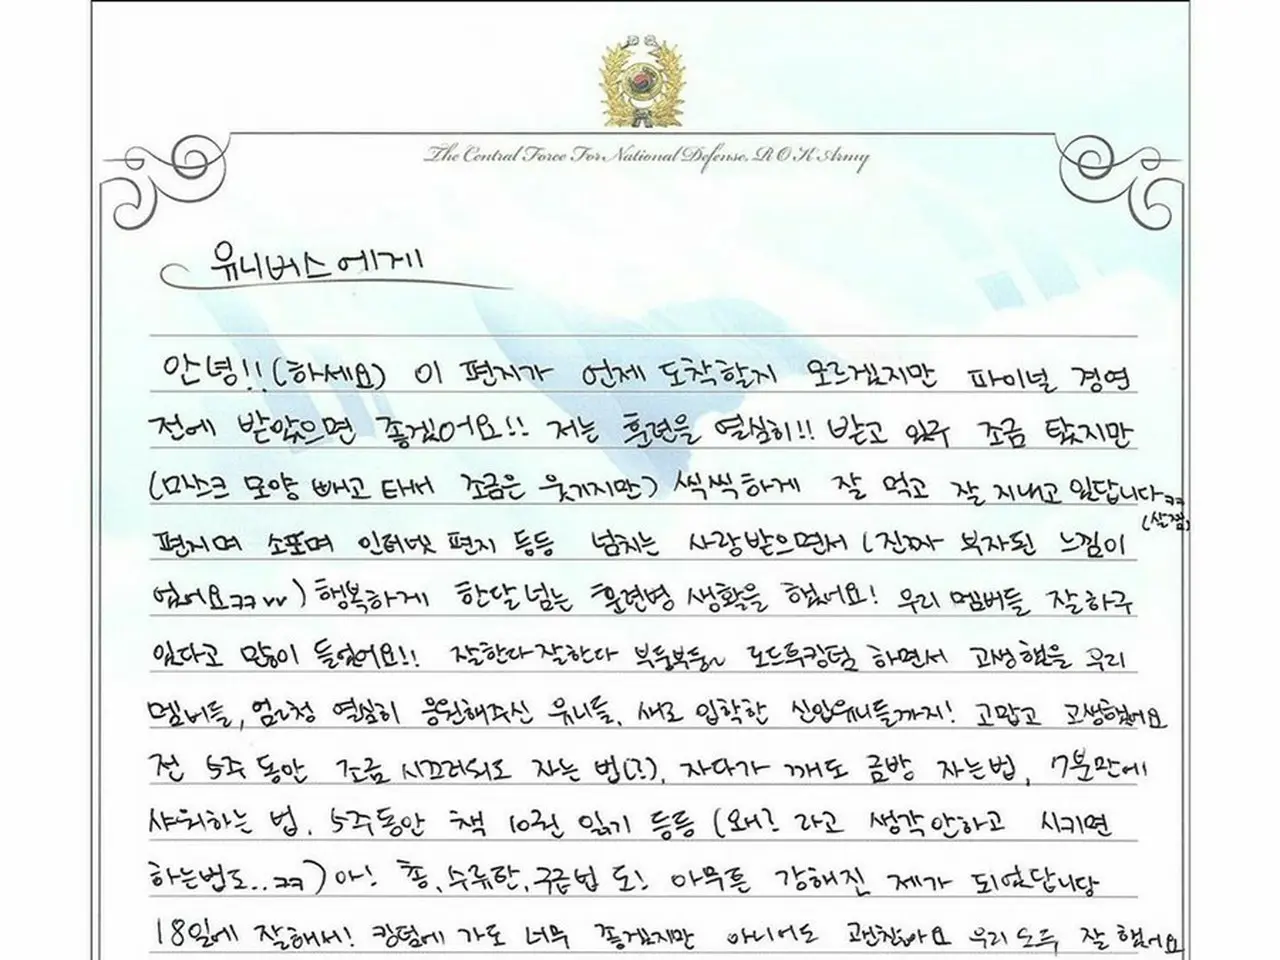 The Central Force For National Defense, R O K Army
유니버스에게
안녕!! (하세요) 이 편지가 언제 도착할지 모르겠지만 파이널 경연
전에 받았으면 좋겠어요!! 저는 훈련을 열심히!! 받고 있구 조금 탔지만
(마스크 모양 빼고 타서 조금은 웃기지만) 씩씩하게 잘 먹고 잘 지내고 있답니다ㅋㅋ
(살찜)
편지며 소포며 인터넷 편지 등등 넘치는 사랑받으면서 (진짜 부자된 느낌이
었어요ㅋㅋvv) 행복하게 한달 넘는 훈련병 생활을 했어요! 우리 멤버들 잘하구
있다고 많이 들었어요!! 잘한다잘한다 부둥부둥~ 로드투킹덤 하면서 고생했을 우리
멤버들, 엄청 열심히 응원해주신 유니들, 새로 입학한 신입유니들까지! 고맙고 고생했어요
전 5주 동안 조금 시끄러워도 자는 법(?), 자다가 깨도 금방 자는법, 7분만에
샤워하는 법, 5주동안 책 10권 읽기 등등 (왜? 라고 생각안하고 시키면
하는법도..ㅋㅋ) 아! 총, 수류탄, 구급법 도! 아무튼 강해진 제가 되었답니당
18일에 잘해서! 킹덤에 가도 너무 좋겠지만 아니어도 괜찮아요 우리 모두 잘 했어요